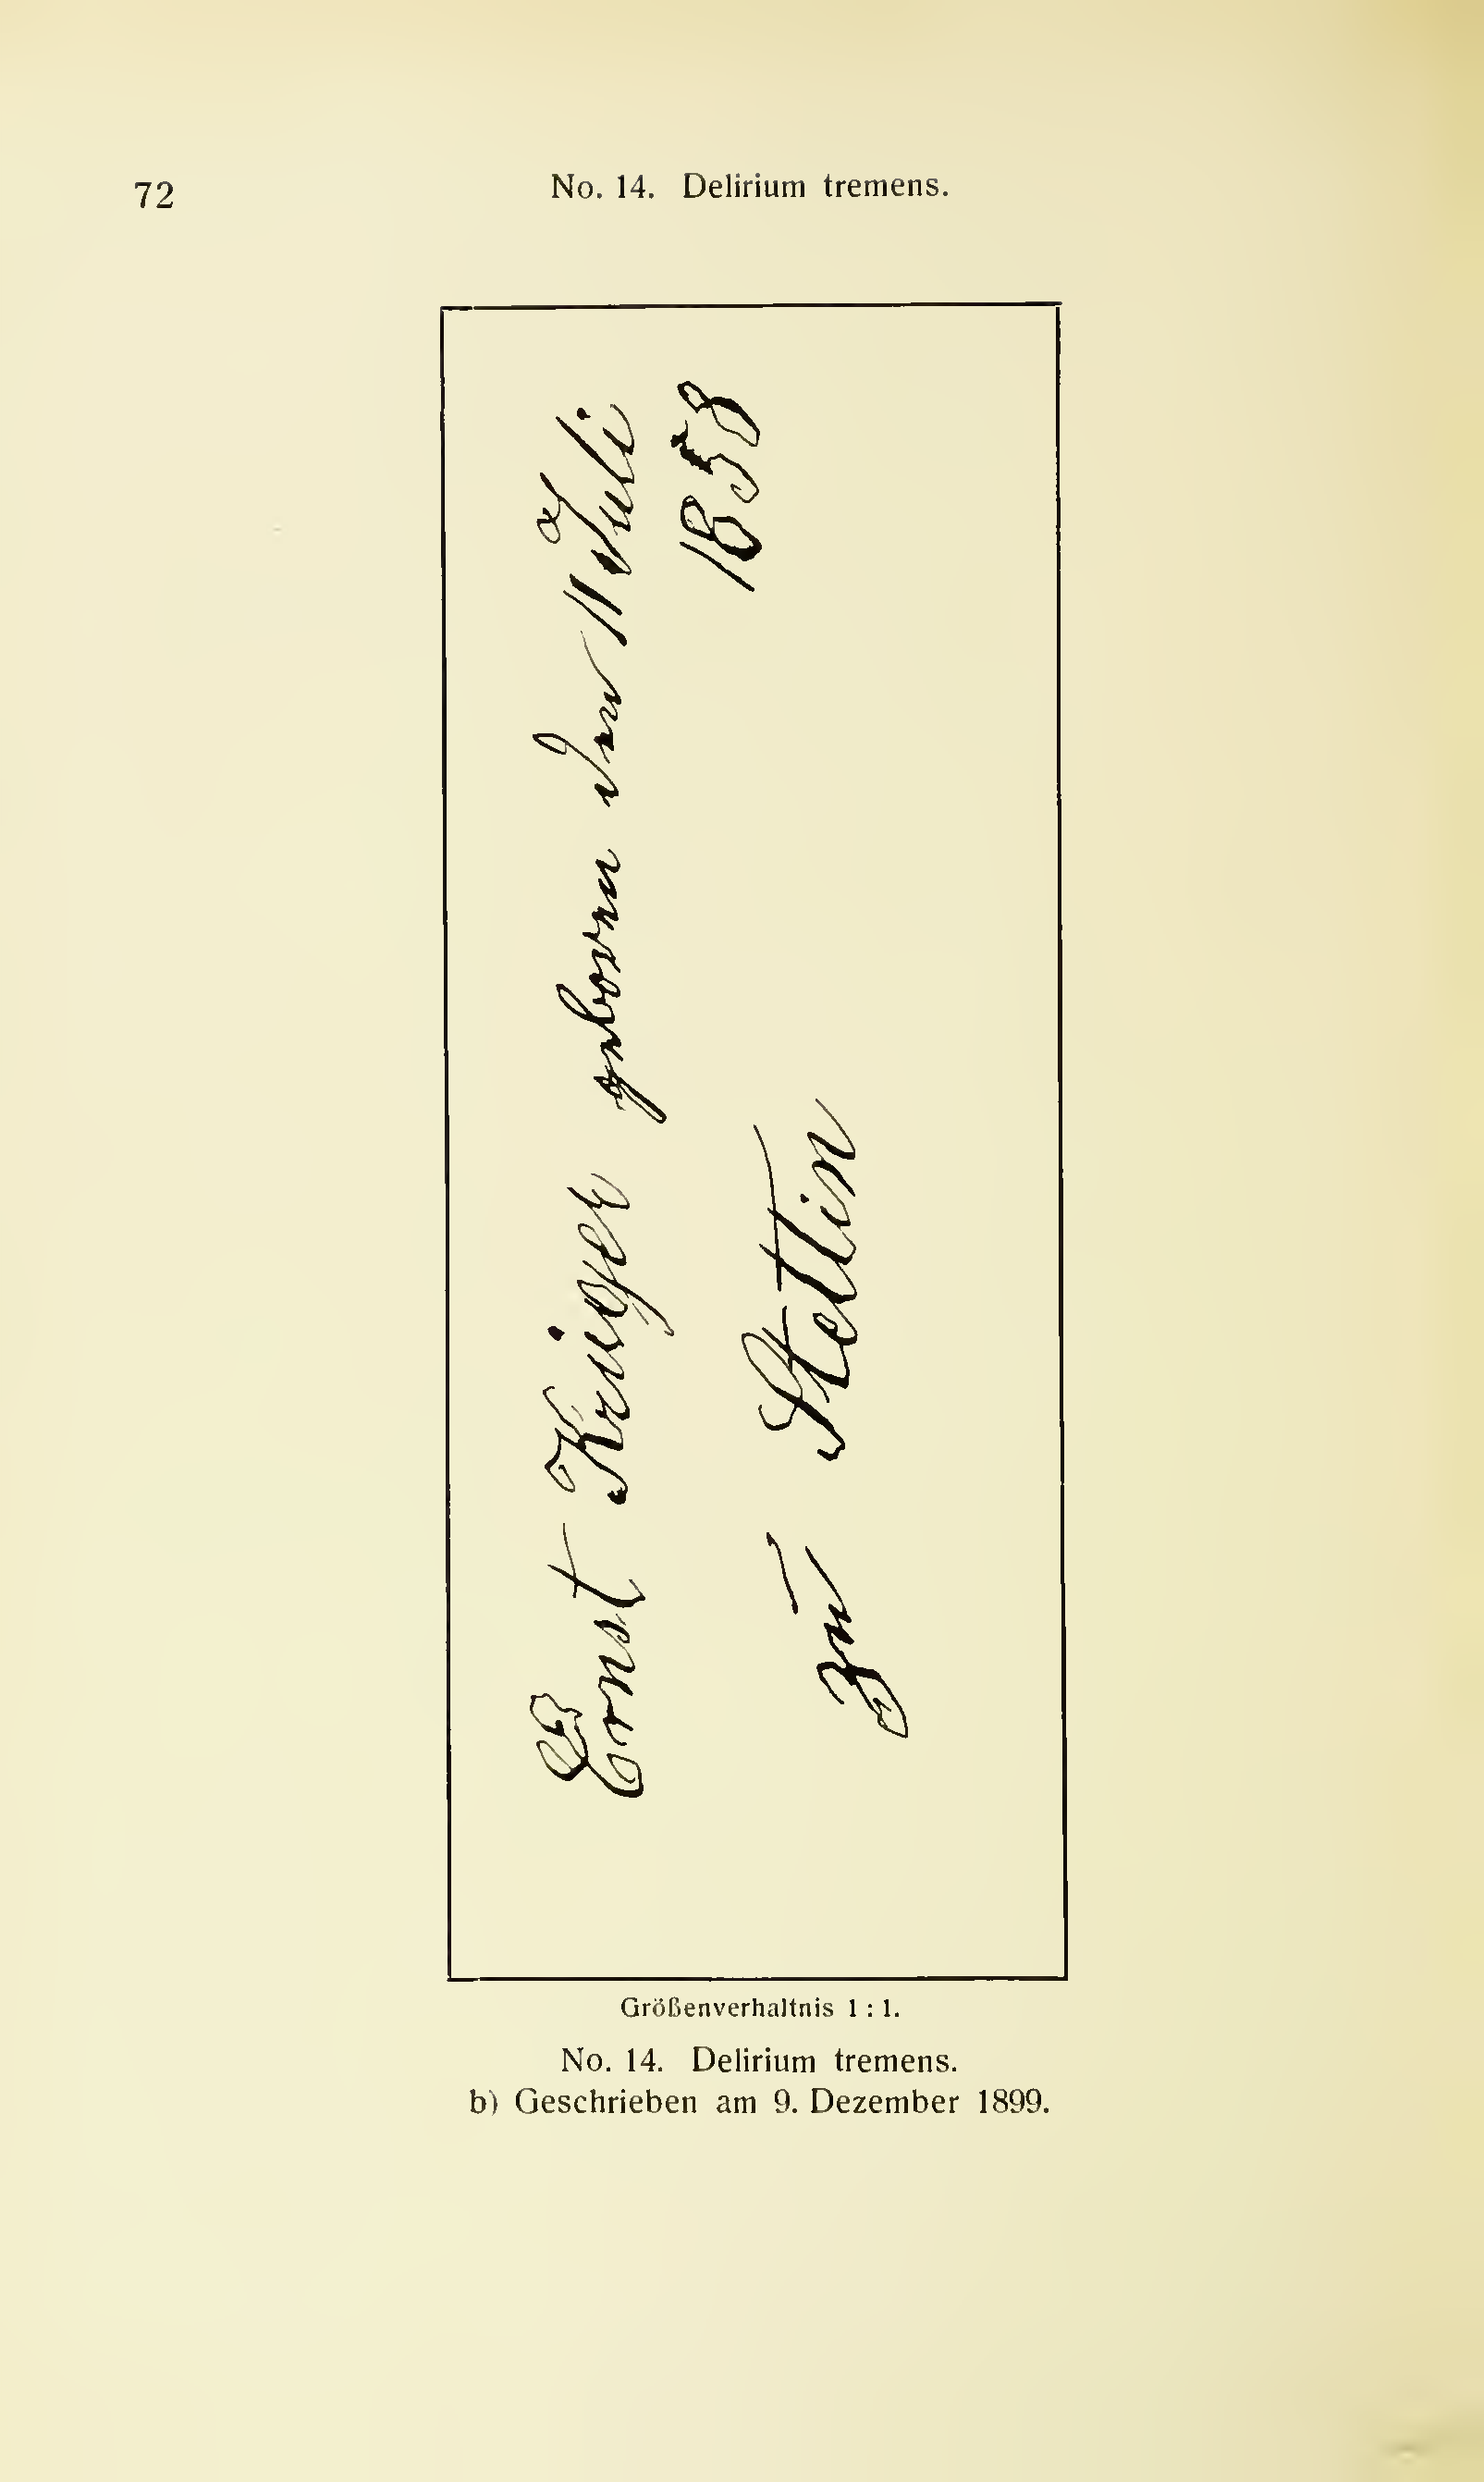 72
No. 14. Delirium tremens.
Ernst Krüger geboren den 11 Juli
1858
zu Stettin
Größenverhaltnis 1 : 1.
No. 14. Delirium tremens.
b) Geschrieben am 9. Dezember 1899.